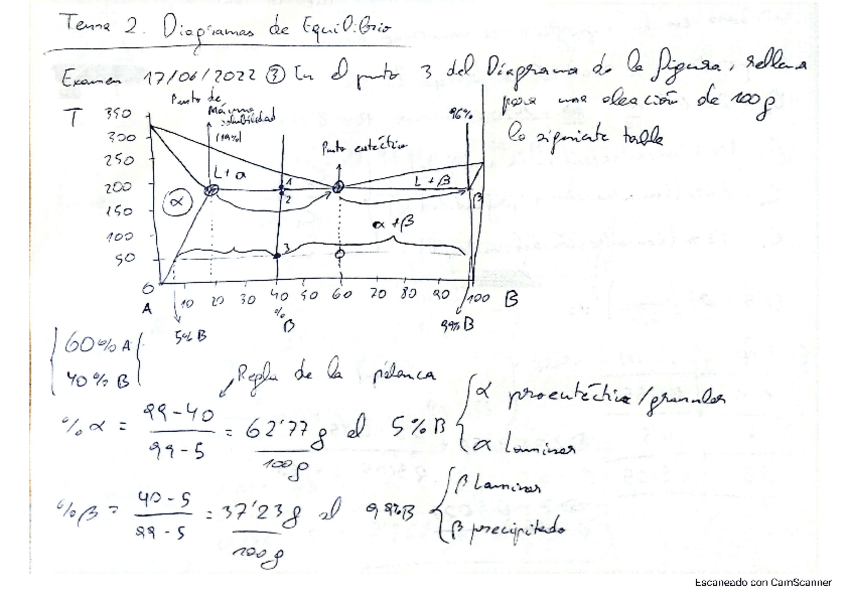 Tema 2. Diagramas de Equilibrio
Examen 17/06/2022 ③ En el punto 3 del Diagrama de la figura, rellena
para una aleación de 100g
la siguiente tabla
T
350
300
250
200
150
100
50
0
Punto de
Máxima
solubilidad
(19%)
Punto eutéctico
96%
L+α
L+β
α
β
α+β
1
2
3
A
10 20 30 40 50 60 70 80 90 100 B
% B
5% B
99% B
60% A
40% B
Regla de la palanca
% α = 99-40 / 99-5 = 62'77 g / 100g al 5% B
α proeutéctico/granular
α laminar
% β = 40-5 / 99-5 = 37'23 g / 100g al 99% B
β laminar
β precipitado
Escaneado con CamScanner